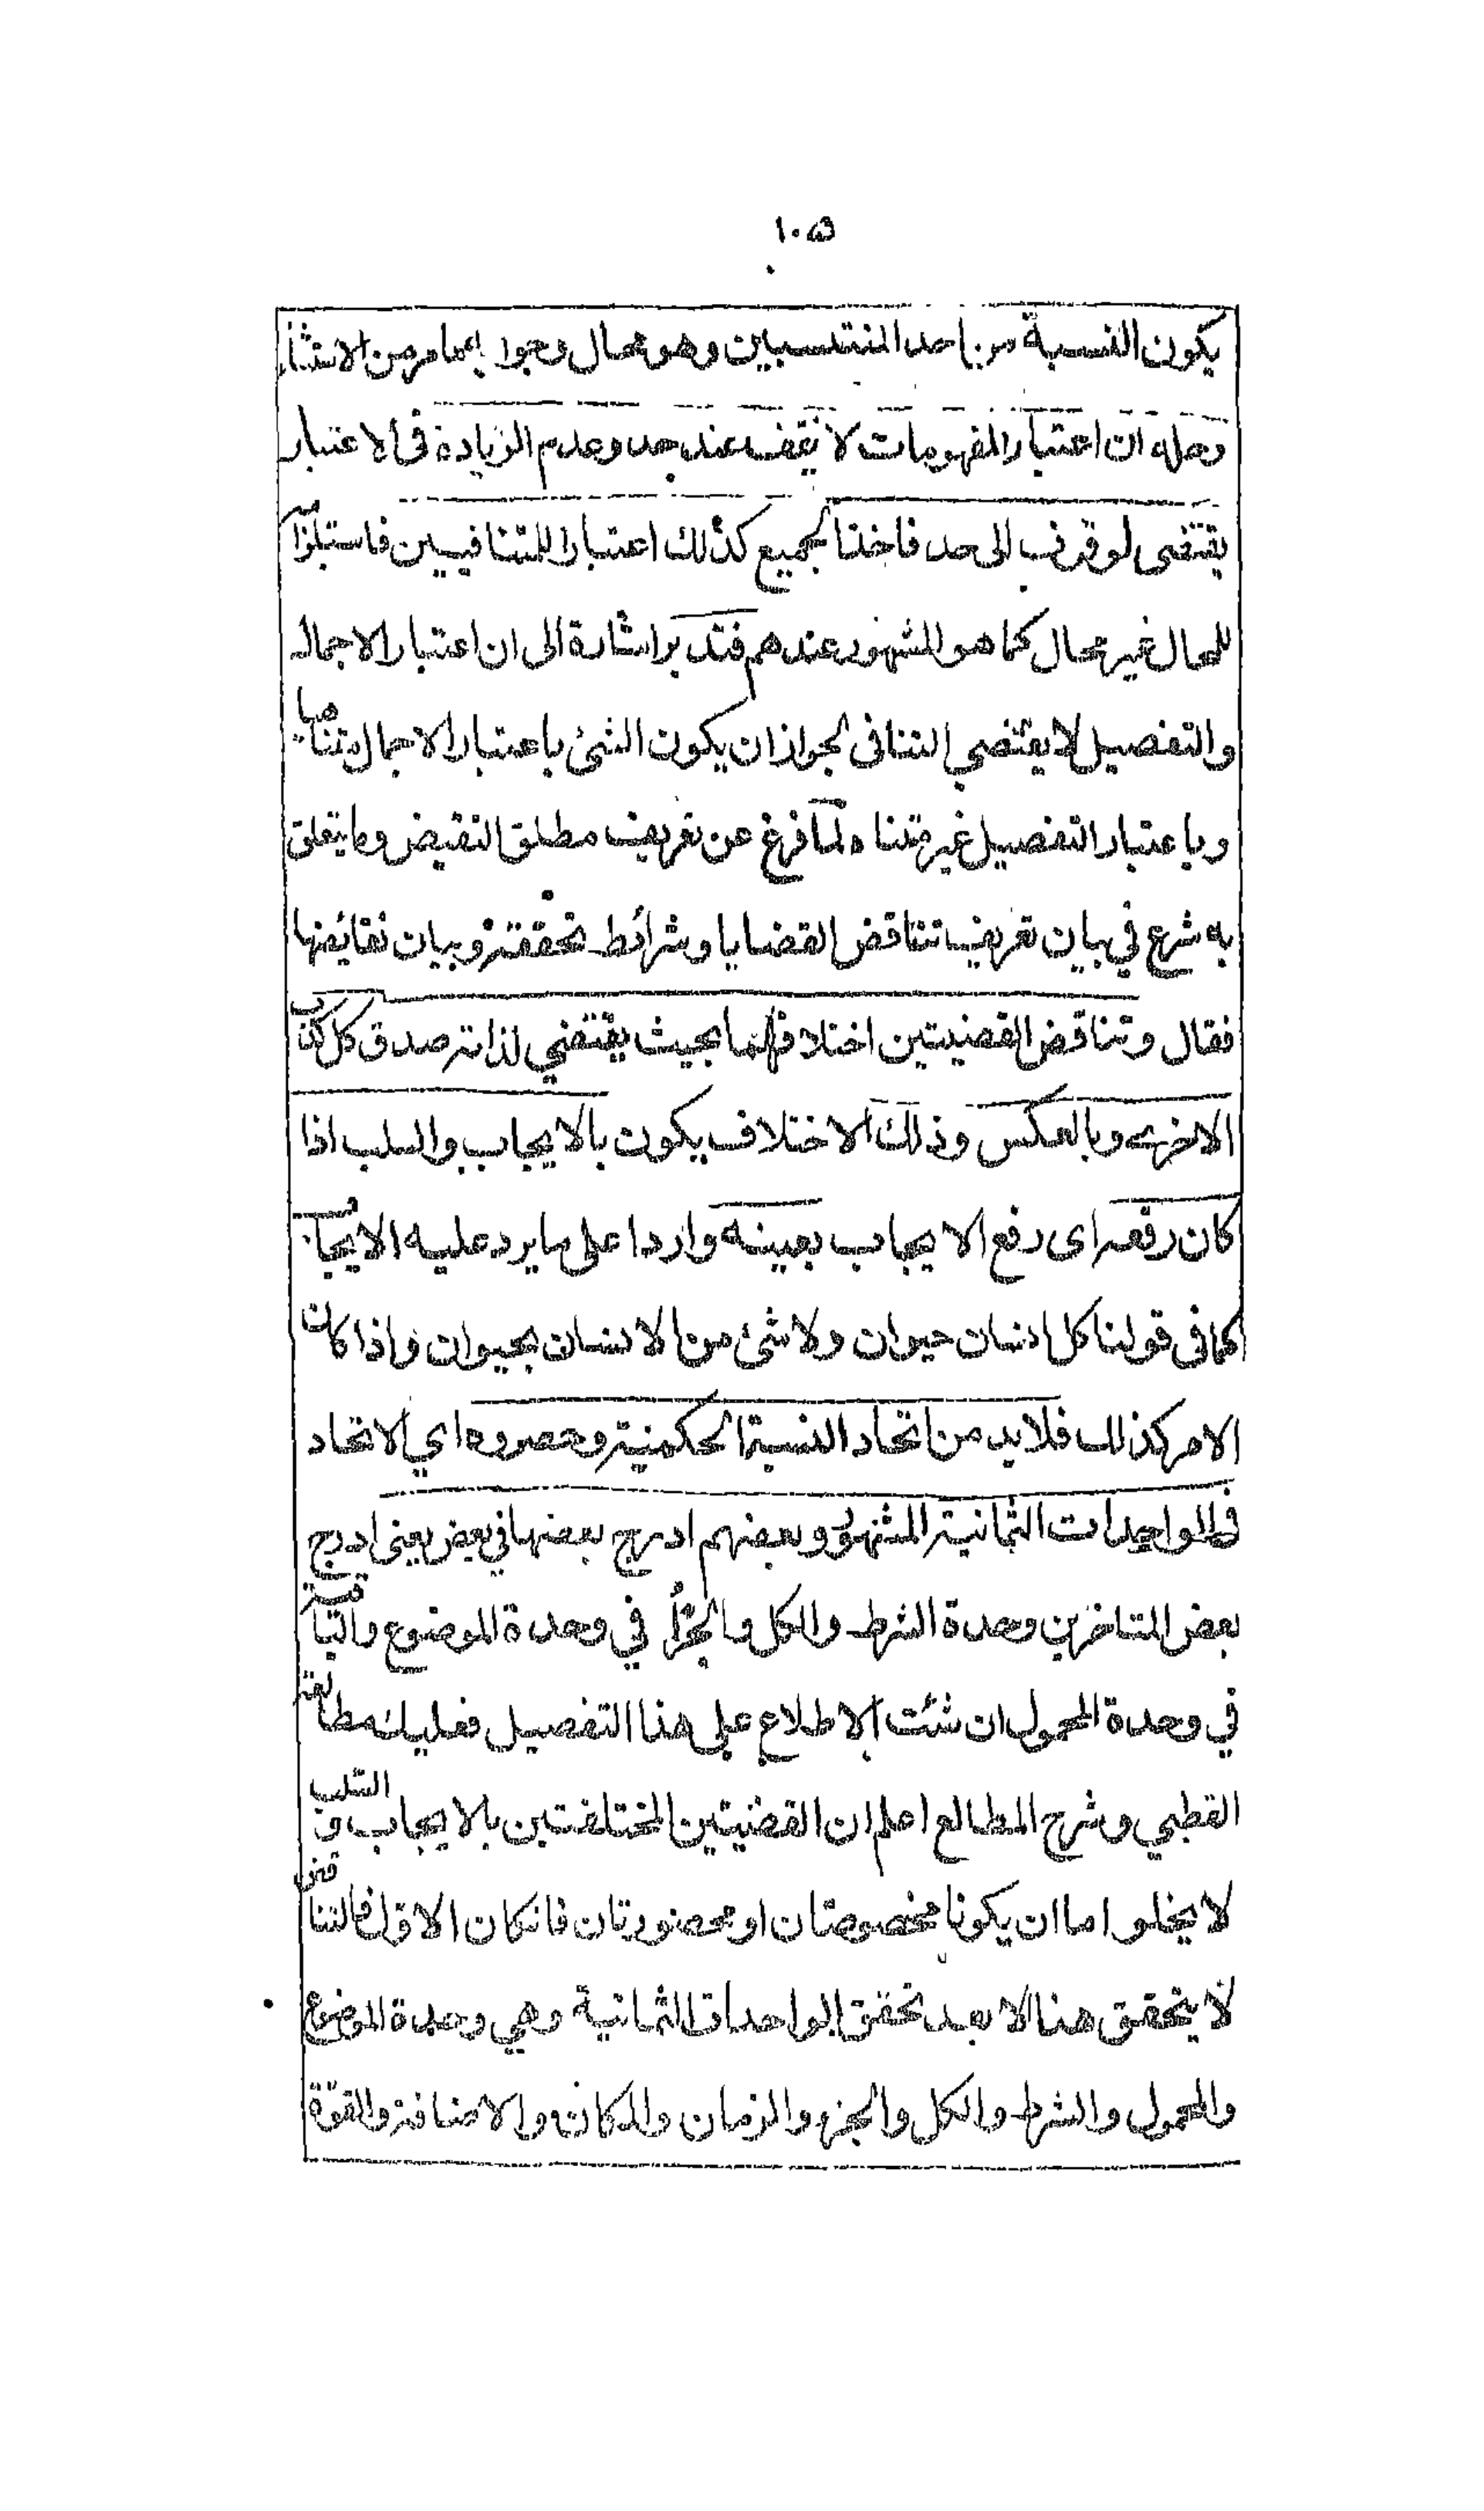 ١٠٥
يكون النسبة من احد المنتسبين وهو محال وجوابه مما مر من الاشا
وحله ان اعتبار المفهومات لا يقف عند حد وعدم الزيادة فى الاعتبار
يقتضى لوقوف الى حد فاخذ الجميع كذلك اعتبار للمتنافيين فاستلزامه
للمحال غير محال كما هو المشهور عندهم فتدبر اشارة الى ان اعتبار الاجمال
والتفصيل لا يقتضي التنافى لجواز ان يكون الشئ باعتبار الاجمال متناهيا
وباعتبار التفصيل غير متناه ولما فرغ عن تعريف مطلق النقيض وما يتعلق
به شرع في بيان تعريف تناقض القضايا وشرائط تحققه وبيان نقائضها
فقال وتناقض القضيتين اختلافهما بحيث يقتضي لذاته صدق كل كذب
الاخرى وبالعكس وذلك الاختلاف يكون بالايجاب والسلب اذا
كان رفعه اى رفع الايجاب بعينه واردا على ما يرد عليه الايجاب
كما فى قولنا كل انسان حيوان ولا شئ من الانسان بحيوان واذا كان
الامر كذلك فلا بد من اتحاد النسبة الحكمية وحصروه اي الاتحاد
في الواحدات الثمانية المشهورة وبعضهم ادرج بعضها في بعض يعنى ادرج
بعض المتاخرين وحدة الشرط والكل والجزأ في وحدة الموضوع والباقية
في وحدة المحمول ان شئت الاطلاع على هذا التفصيل فعليك مطالعة
القطبي وشرح المطالع اعلم ان القضيتين المختلفتين بالايجاب والسلب
لا يخلو اما ان يكونا مخصوصتان او محصورتان فانكان الاول فالتناقض
لا يتحقق هنا الا بعد تحقق الواحدات الثمانية وهي وحدة الموضوع
والمحمول والشرط والكل والجزء والزمان والمكان والاضافة والقوة